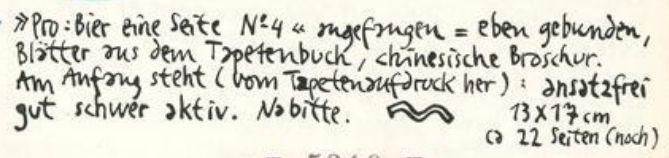 »Pro: Bier eine Seite Nº 4 « angefangen = eben gebunden,
Blätter aus dem Tapetenbuch, chinesische Broschur.
Am Anfang steht (vom Tapetenaufdruck her): ansatzfrei
gut schwer aktiv. Nabitte.
13 X 17 cm
ca 22 Seiten (noch)